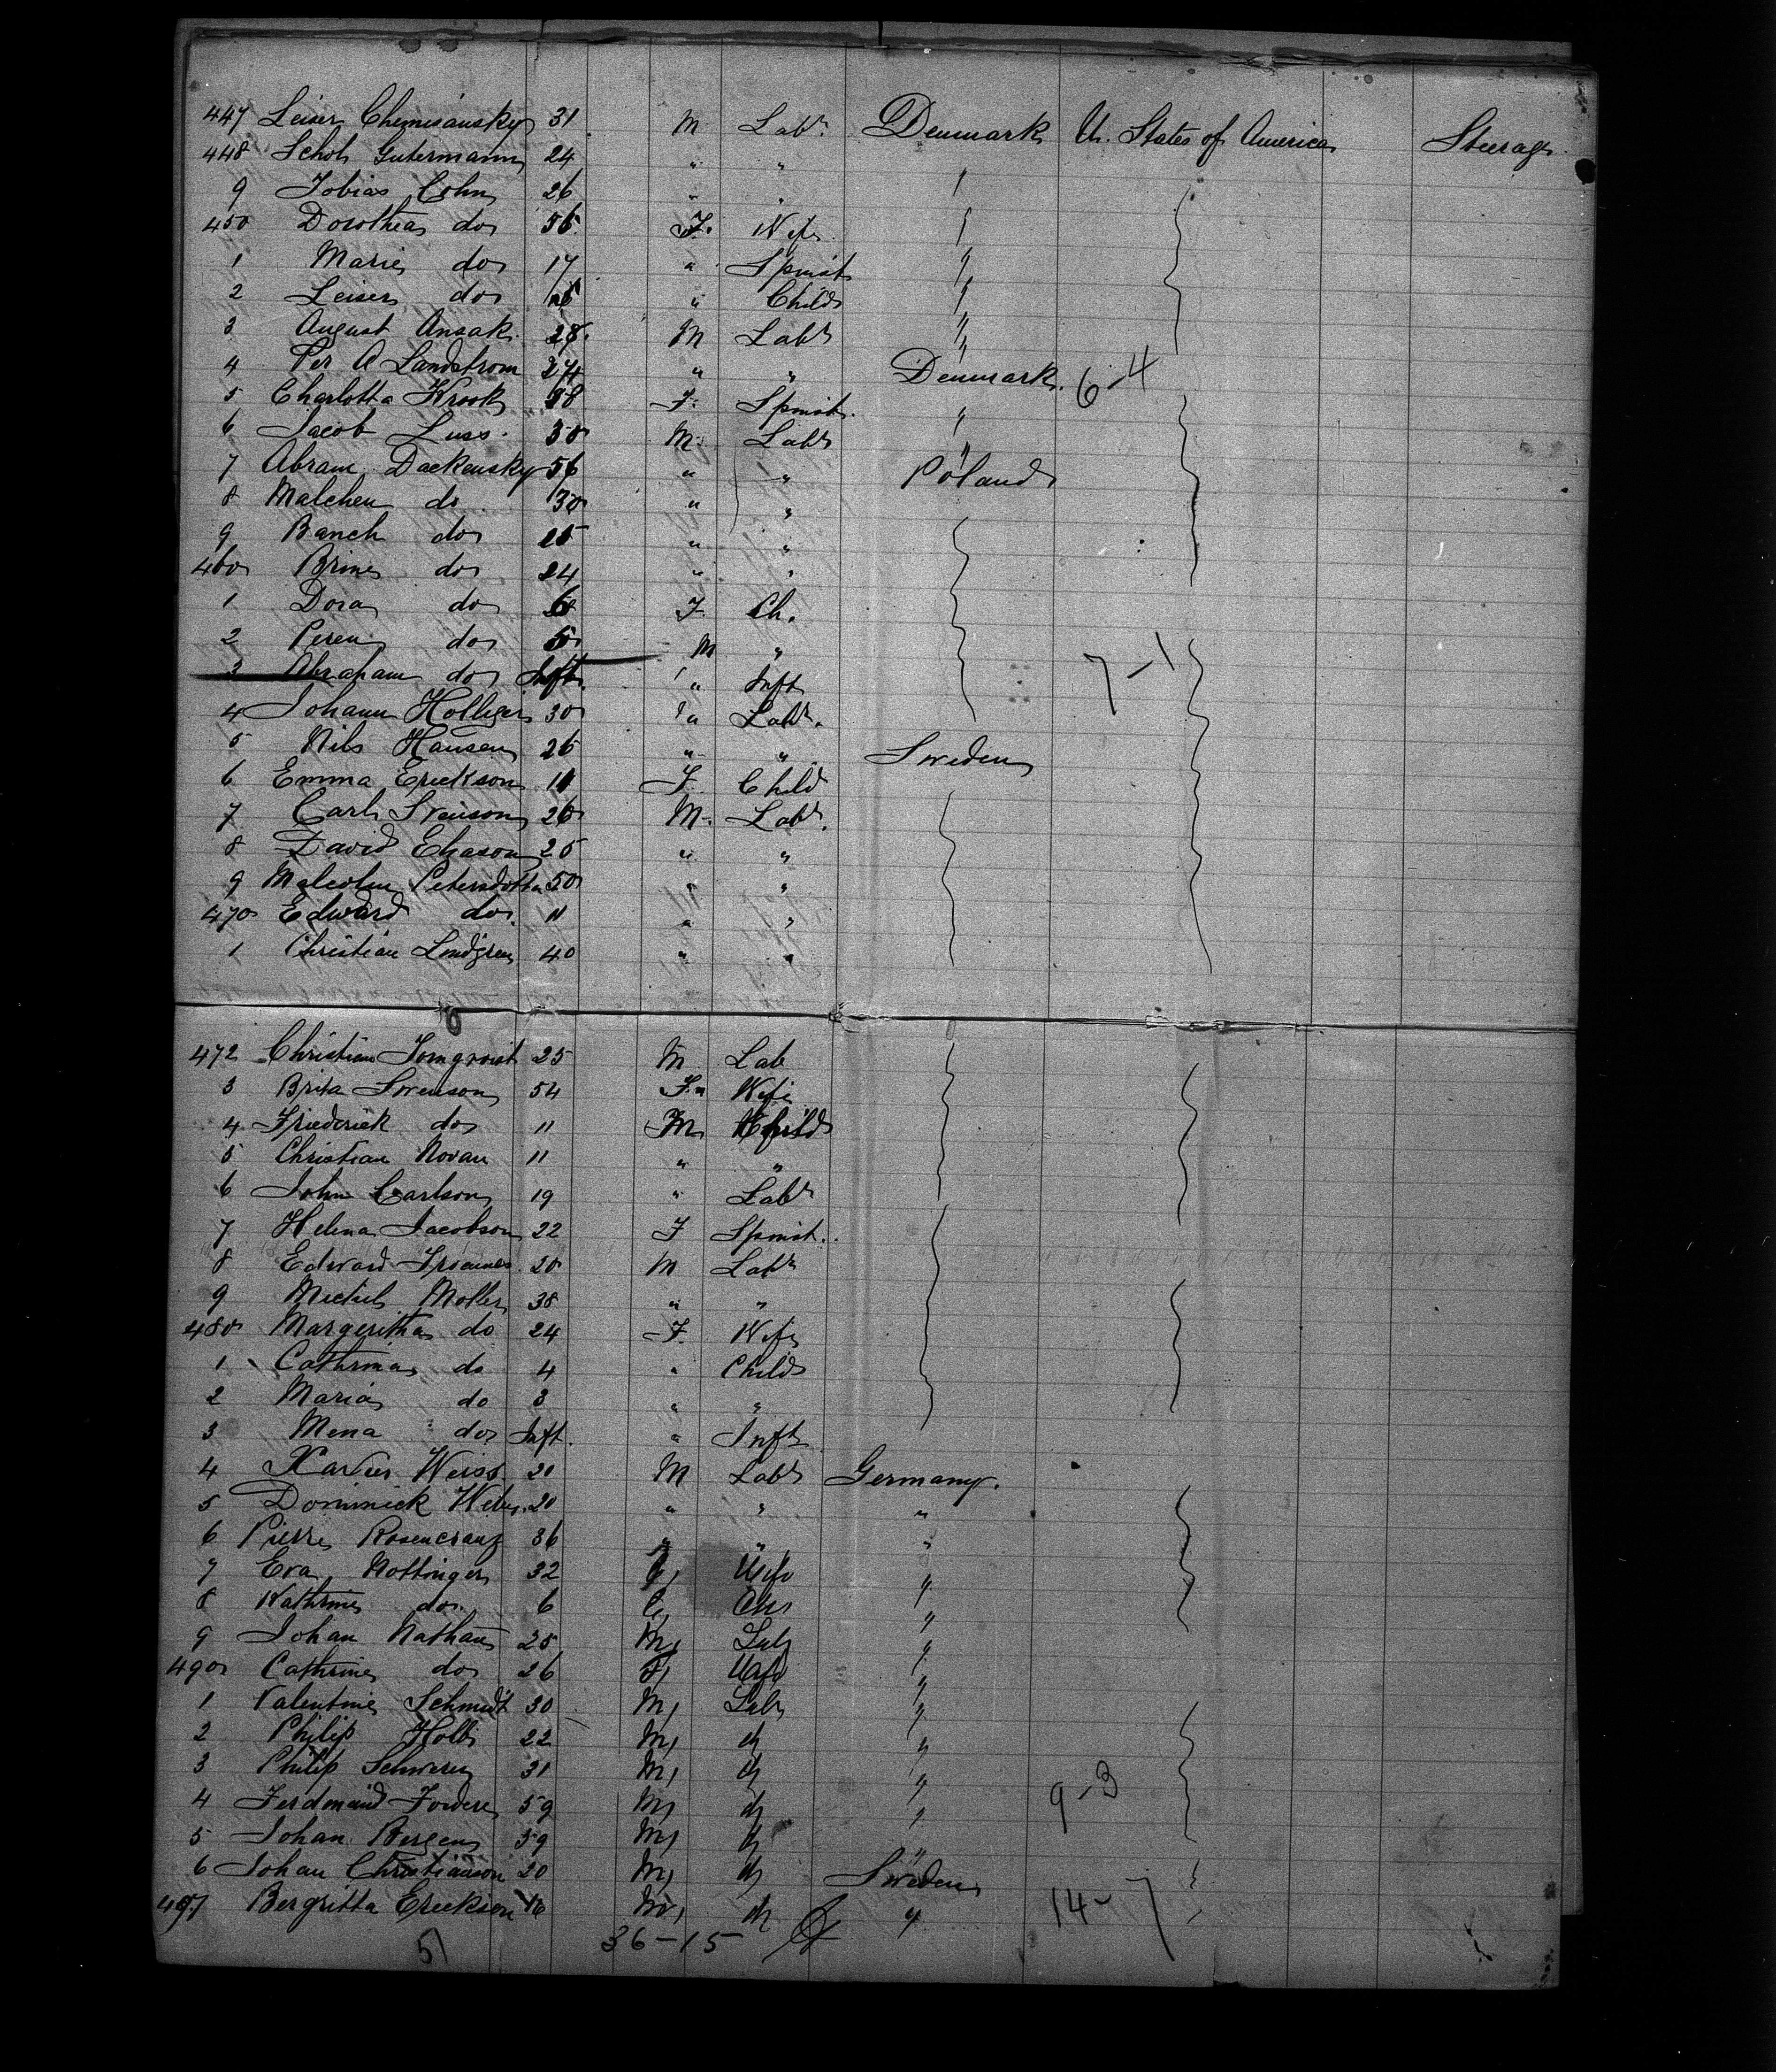 447 Leiser Chemisansky 31 M Labr. Denmark U. States of America Steerage
448 Schol Gutermann 24 " "
9 Tobias Cohn 26 " " "
450 Dorothea do 56 F. Wife "
1 Marie do 17 " Spinst "
2 Leiser do " Child "
3 August Ansak. 28. M Labr "
4 Per A Landstrom 24 " " Denmark. 6-4
5 Charlotta Krook 38 F. Spinst. "
6 Jacob Luss. 30 M. Labr "
7 Abram Dackensky 56 " " Poland
8 Malchen do 30 " "
9 Banch do 25 " "
460 Brine do 24 " "
1 Dora do 6 F. Ch.
2 Peren do 5 M "
3 Abraham do Inft. " Inft 7-1
4 Johann Holliger 30 " Labr.
5 Nils Hansen 26 " " Sweden
6 Emma Erickson 11 F. Child
7 Carl Svenson 26 M. Labr.
8 David Eliason 25 " "
9 Malcolm Petersdotta 50 " "
470 Edward do 11 " "
1 Christian Lindgren 40 " "
472 Christian Tornqvist 25 M Lab
3 Brita Swenson 54 F. Wife
4 Friederick do 11 M Child
5 Christian Novan 11 " "
6 John Carlson 19 " Labr
7 Helena Jacobson 22 F Spinst.
8 Edward 20 M Labr
9 Michel Moller 38 " "
480 Margeritha do 24 F. Wife
1 Cathrina do 4 " Child
2 Maria do 3 " "
3 Mena do Inft. " Inft
4 Xavier Weiss 20 M Labr Germany.
5 Dominick 20 " " "
6 Pierre Rosencranz 36 " " "
7 Eva Nottinger 32 Wife "
8 Kathrine do 6 "
9 Johan Nathan 25 M, Lab "
490 Cathrine do 26 F, Wife "
1 Valentine Schmidt 30 M, Lab "
2 Philip Holb 22 M, do "
3 Philip 31 M, do "
4 Ferdinand 59 M, do " 9-3
5 Johan Bergen 39 M, do "
6 Johan Christianson 20 M, do Sweden
497 Bergritta Erickson 16 do " 14-7
51 36-15